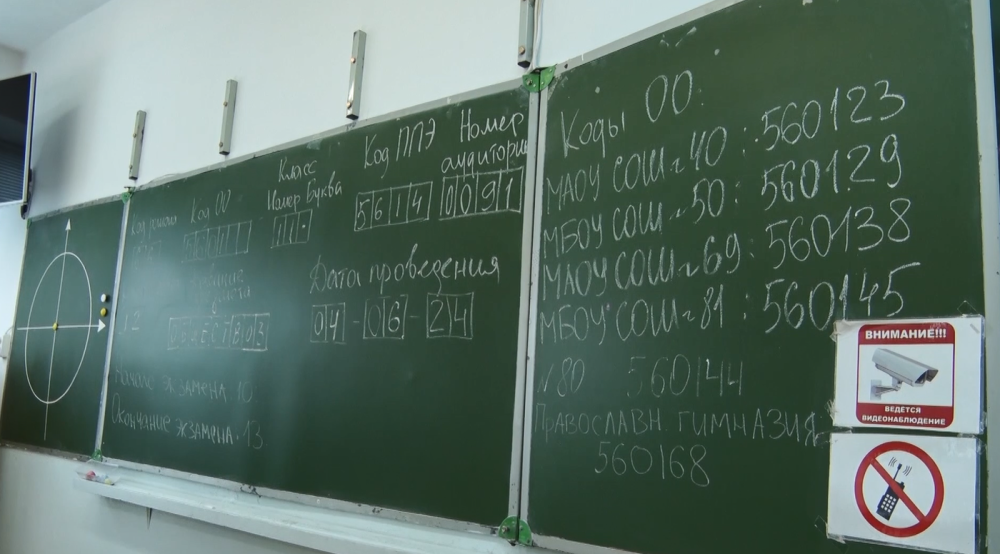 Код ОО
Класс
Номер Буква
Код ППЭ
Номер
аудитории
5614
0091
11
Дата проведения
04-06-24
Начало экзамена 10
Окончание экзамена 13
Коды ОО:
МАОУ СОШ №40: 560123
МБОУ СОШ №50: 560129
МАОУ СОШ №69: 560138
МБОУ СОШ №81: 560145
№80 560144
Православн. гимназия
560168
ВНИМАНИЕ!!!
ВЕДЕТСЯ
ВИДЕОНАБЛЮДЕНИЕ